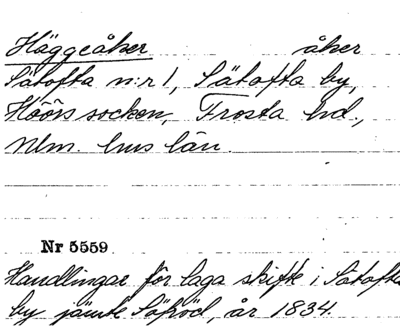 Häggeåker åker
Sätofta n:r 1, Sätofta by,
Höörs socken, Frosta hd.,
Mlm. hus län.
Nr 5559
Handlingar för laga skifte i Sätofta
by jämte Säfröd, år 1834.